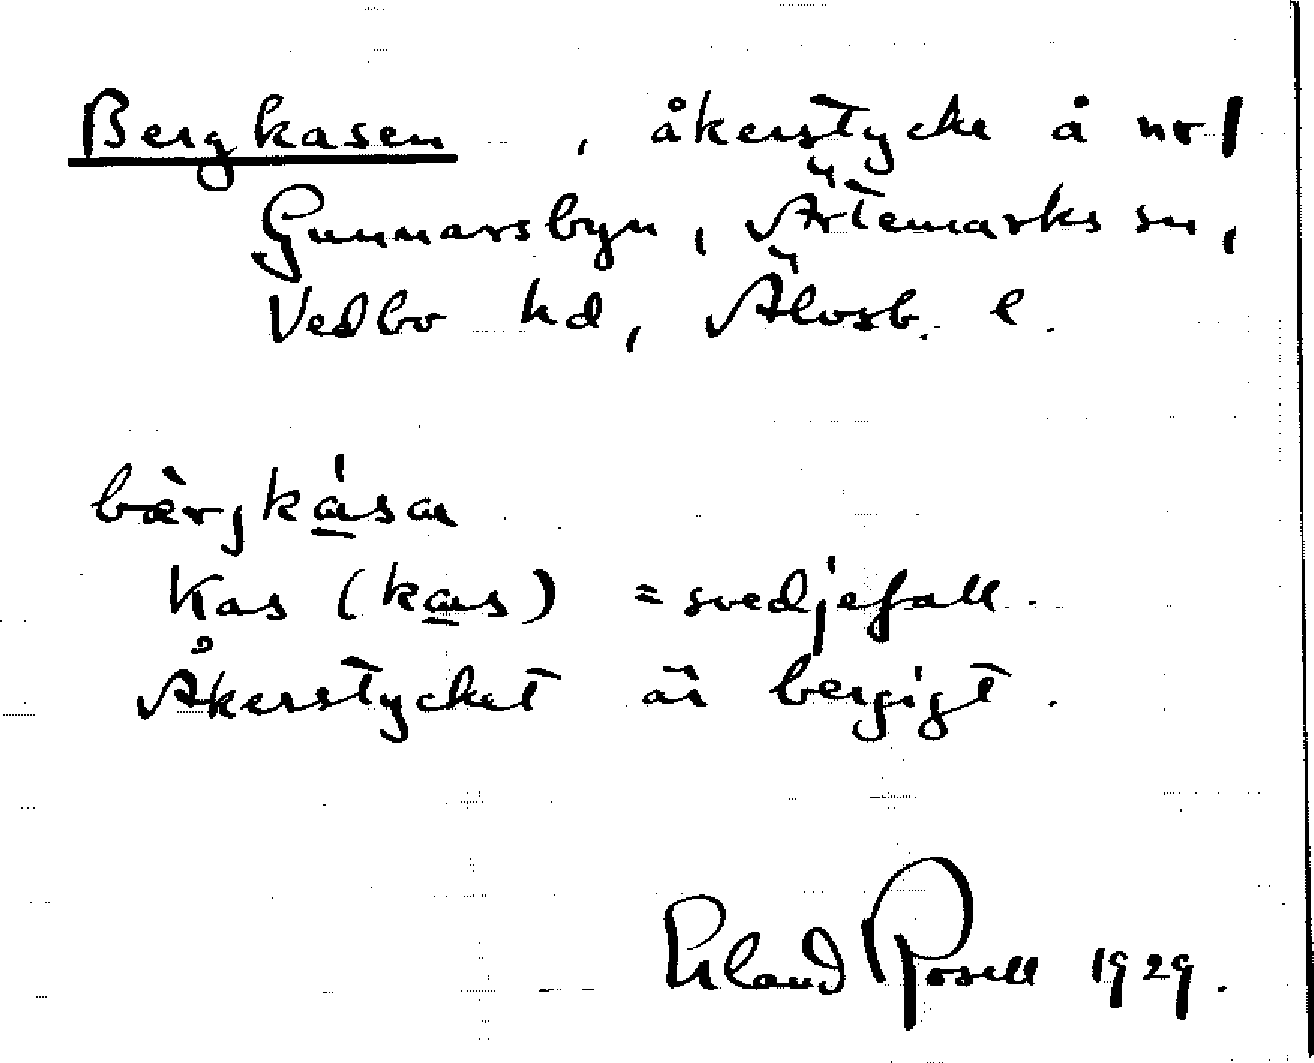 Bergkasen, åkerstycke å nr 1
Gunnarsbyn, Ärtemarks sn,
Vedbo hd, Älvsb. l.
bàrjkásan
Kas (kas) = svedjefall.
Åkerstycket är bergigt.
Erland Rosell 1929.